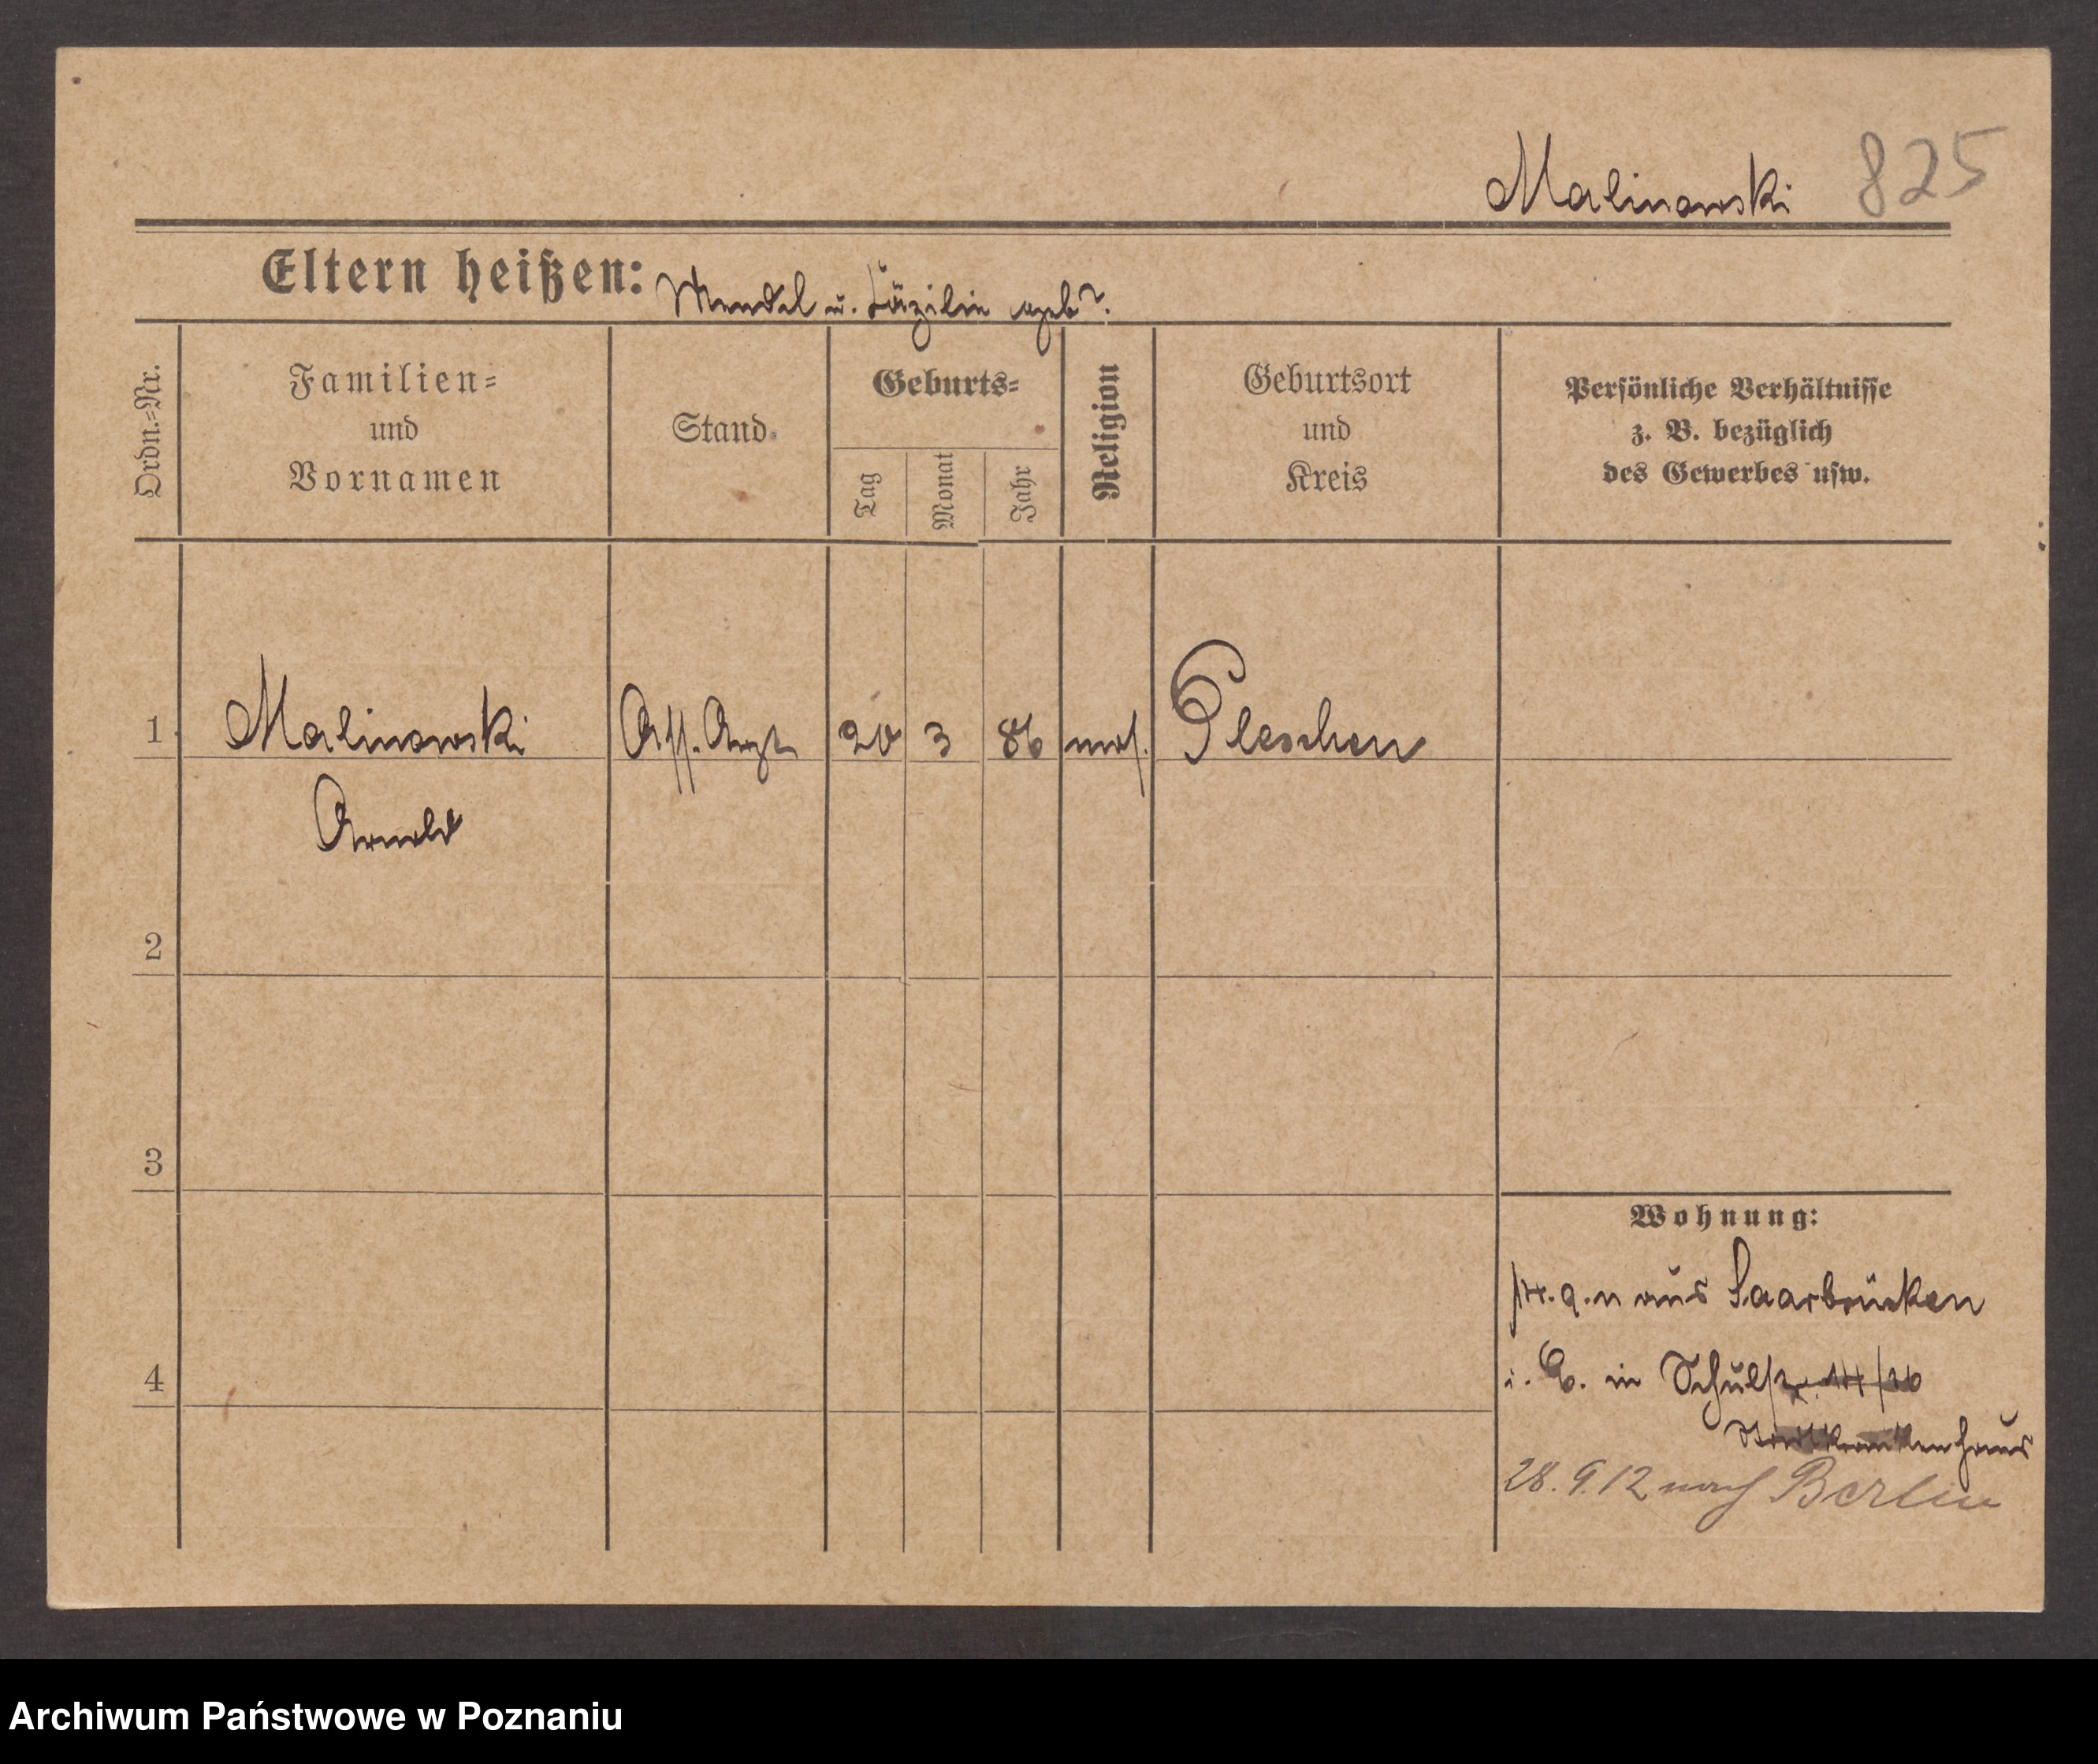 Malinowski 825
Eltern heißen: Mendel u. Cäzilie geb?.
Ordn.=Nr.
Familien=
und
Vornamen
Stand.
Geburts=
Tag
Monat
Jahr
Religion
Geburtsort
und
Kreis
Persönliche Verhältnisse
z. B. bezüglich
des Gewerbes usw.
1 Malinowski Ass. Arzt 20 3 86 mos. Pleschen
Arnold
2
3
4
Wohnung:
aus Saarbrücken
in Schulstr.
Stadtkrankenhaus
28.9.12 nach Berlin
Archiwum Państwowe w Poznaniu